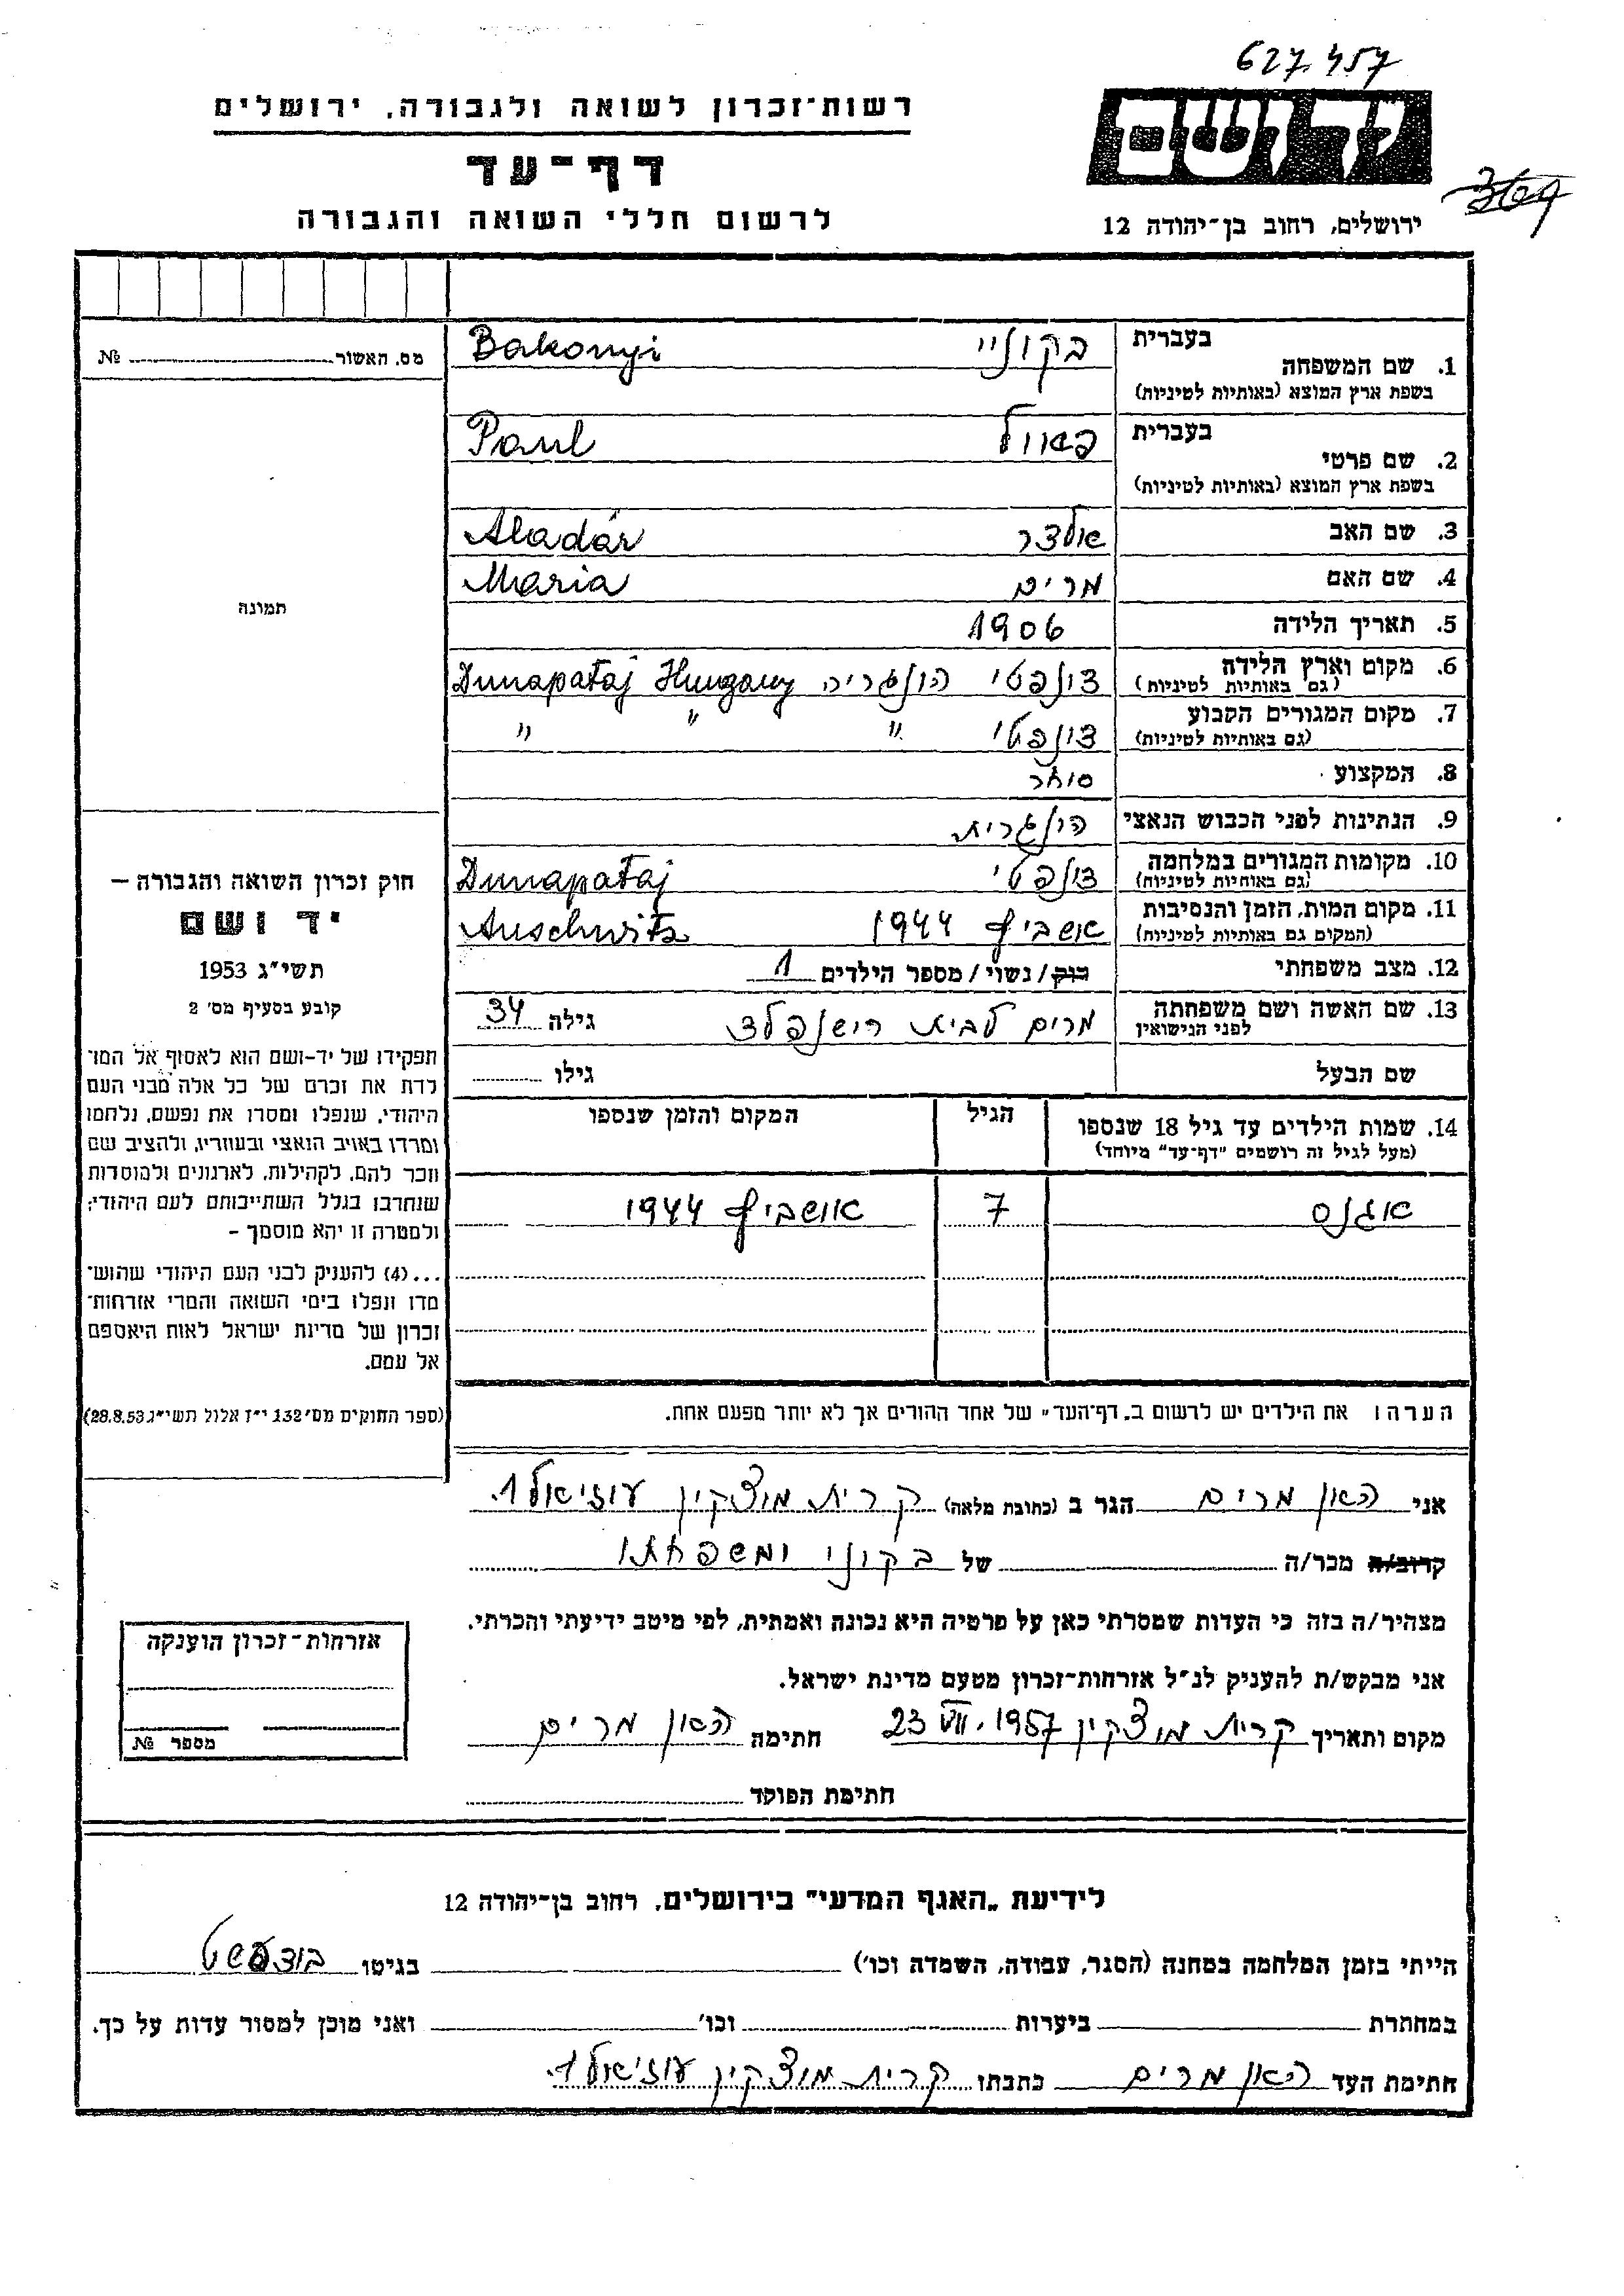 627.457
רשות־זכרון לשואה ולגבורה, ירושלים
יד ושם
דף־עד
לרשום חללי השואה והגבורה
ירושלים, רחוב בן־יהודה 12
בעברית בקוניי Bakonyi
1. שם המשפחה
בשפת ארץ המוצא (באותיות לטיניות)
בעברית פאוול Paul
2. שם פרטי
בשפת ארץ המוצא (באותיות לטיניות)
3. שם האב אלדר Aladár
4. שם האם מרים Maria
5. תאריך הלידה 1906
6. מקום וארץ הלידה דונפטי הונגריה Dunapataj Hungary
(גם באותיות לטיניות)
7. מקום המגורים הקבוע דונפטי " " "
(גם באותיות לטיניות)
8. המקצוע סוחר
9. הנתינות לפני הכבוש הנאצי הונגרית
10. מקומות המגורים במלחמה דונפטי Dunapataj
(גם באותיות לטיניות)
11. מקום המות, הזמן והנסיבות אושביץ 1944 Auschwitz
(המקום גם באותיות לטיניות)
12. מצב משפחתי רוק/נשוי/מספר הילדים 1
13. שם האשה ושם משפחתה מרים לבית רישנפלד גילה 34
לפני הנישואין
שם הבעל גילו
14. שמות הילדים עד גיל 18 שנספו הגיל המקום והזמן שנספו
(מעל לגיל זה רושמים "דף־עד" מיוחד)
אגנס 7 אושביץ 1944
הערה: את הילדים יש לרשום ב„דף־העד" של אחד ההורים אך לא יותר מפעם אחת.
מס. האשור №
תמונה
חוק זכרון השואה והגבורה –
יד ושם
תשי"ג 1953
קובע בסעיף מס' 2
תפקידו של יד-ושם הוא לאסוף אל המו־
לדת את זכרם של כל אלה מבני העם
היהודי, שנפלו ומסרו את נפשם, נלחמו
ומרדו באויב הנאצי ובעוזריו, ולהציב שם
וזכר להם, לקהילות, לארגונים ולמוסדות
שנחרבו בגלל השתייכותם לעם היהודי;
ולמטרה זו יהא מוסמך –
...(4) להעניק לבני העם היהודי שהוש־
מדו ונפלו בימי השואה והמרי אזרחות־
זכרון של מדינת ישראל לאות היאספם
אל עמם.
(ספר החוקים מס' 132 י"ז אלול תשי"ג 28.8.53)
אני האון מרים הגר ב (כתובת מלאה) קרית מוצקין עוזיאל 1.
קרוב/ה מכר/ה של בקוני ומשפחתו
מצהיר/ה בזה כי העדות שמסרתי כאן על פרטיה היא נכונה ואמתית, לפי מיטב ידיעתי והכרתי.
אני מבקש/ת להעניק לנ"ל אזרחות־זכרון מטעם מדינת ישראל.
מקום ותאריך קרית מוצקין 23 VII. 1957 חתימה האון מרים
חתימת הפוקד
אזרחות־זכרון הוענקה
מספר №
לידיעת „האגף המדעי" בירושלים, רחוב בן־יהודה 12
הייתי בזמן המלחמה במחנה (הסגר, עבודה, השמדה וכו') בגיטו בודפשט
במחתרת ביערות וכו' ואני מוכן למסור עדות על כך.
חתימת העד האון מרים כתבתו קרית מוצקין עוזיאל 1.